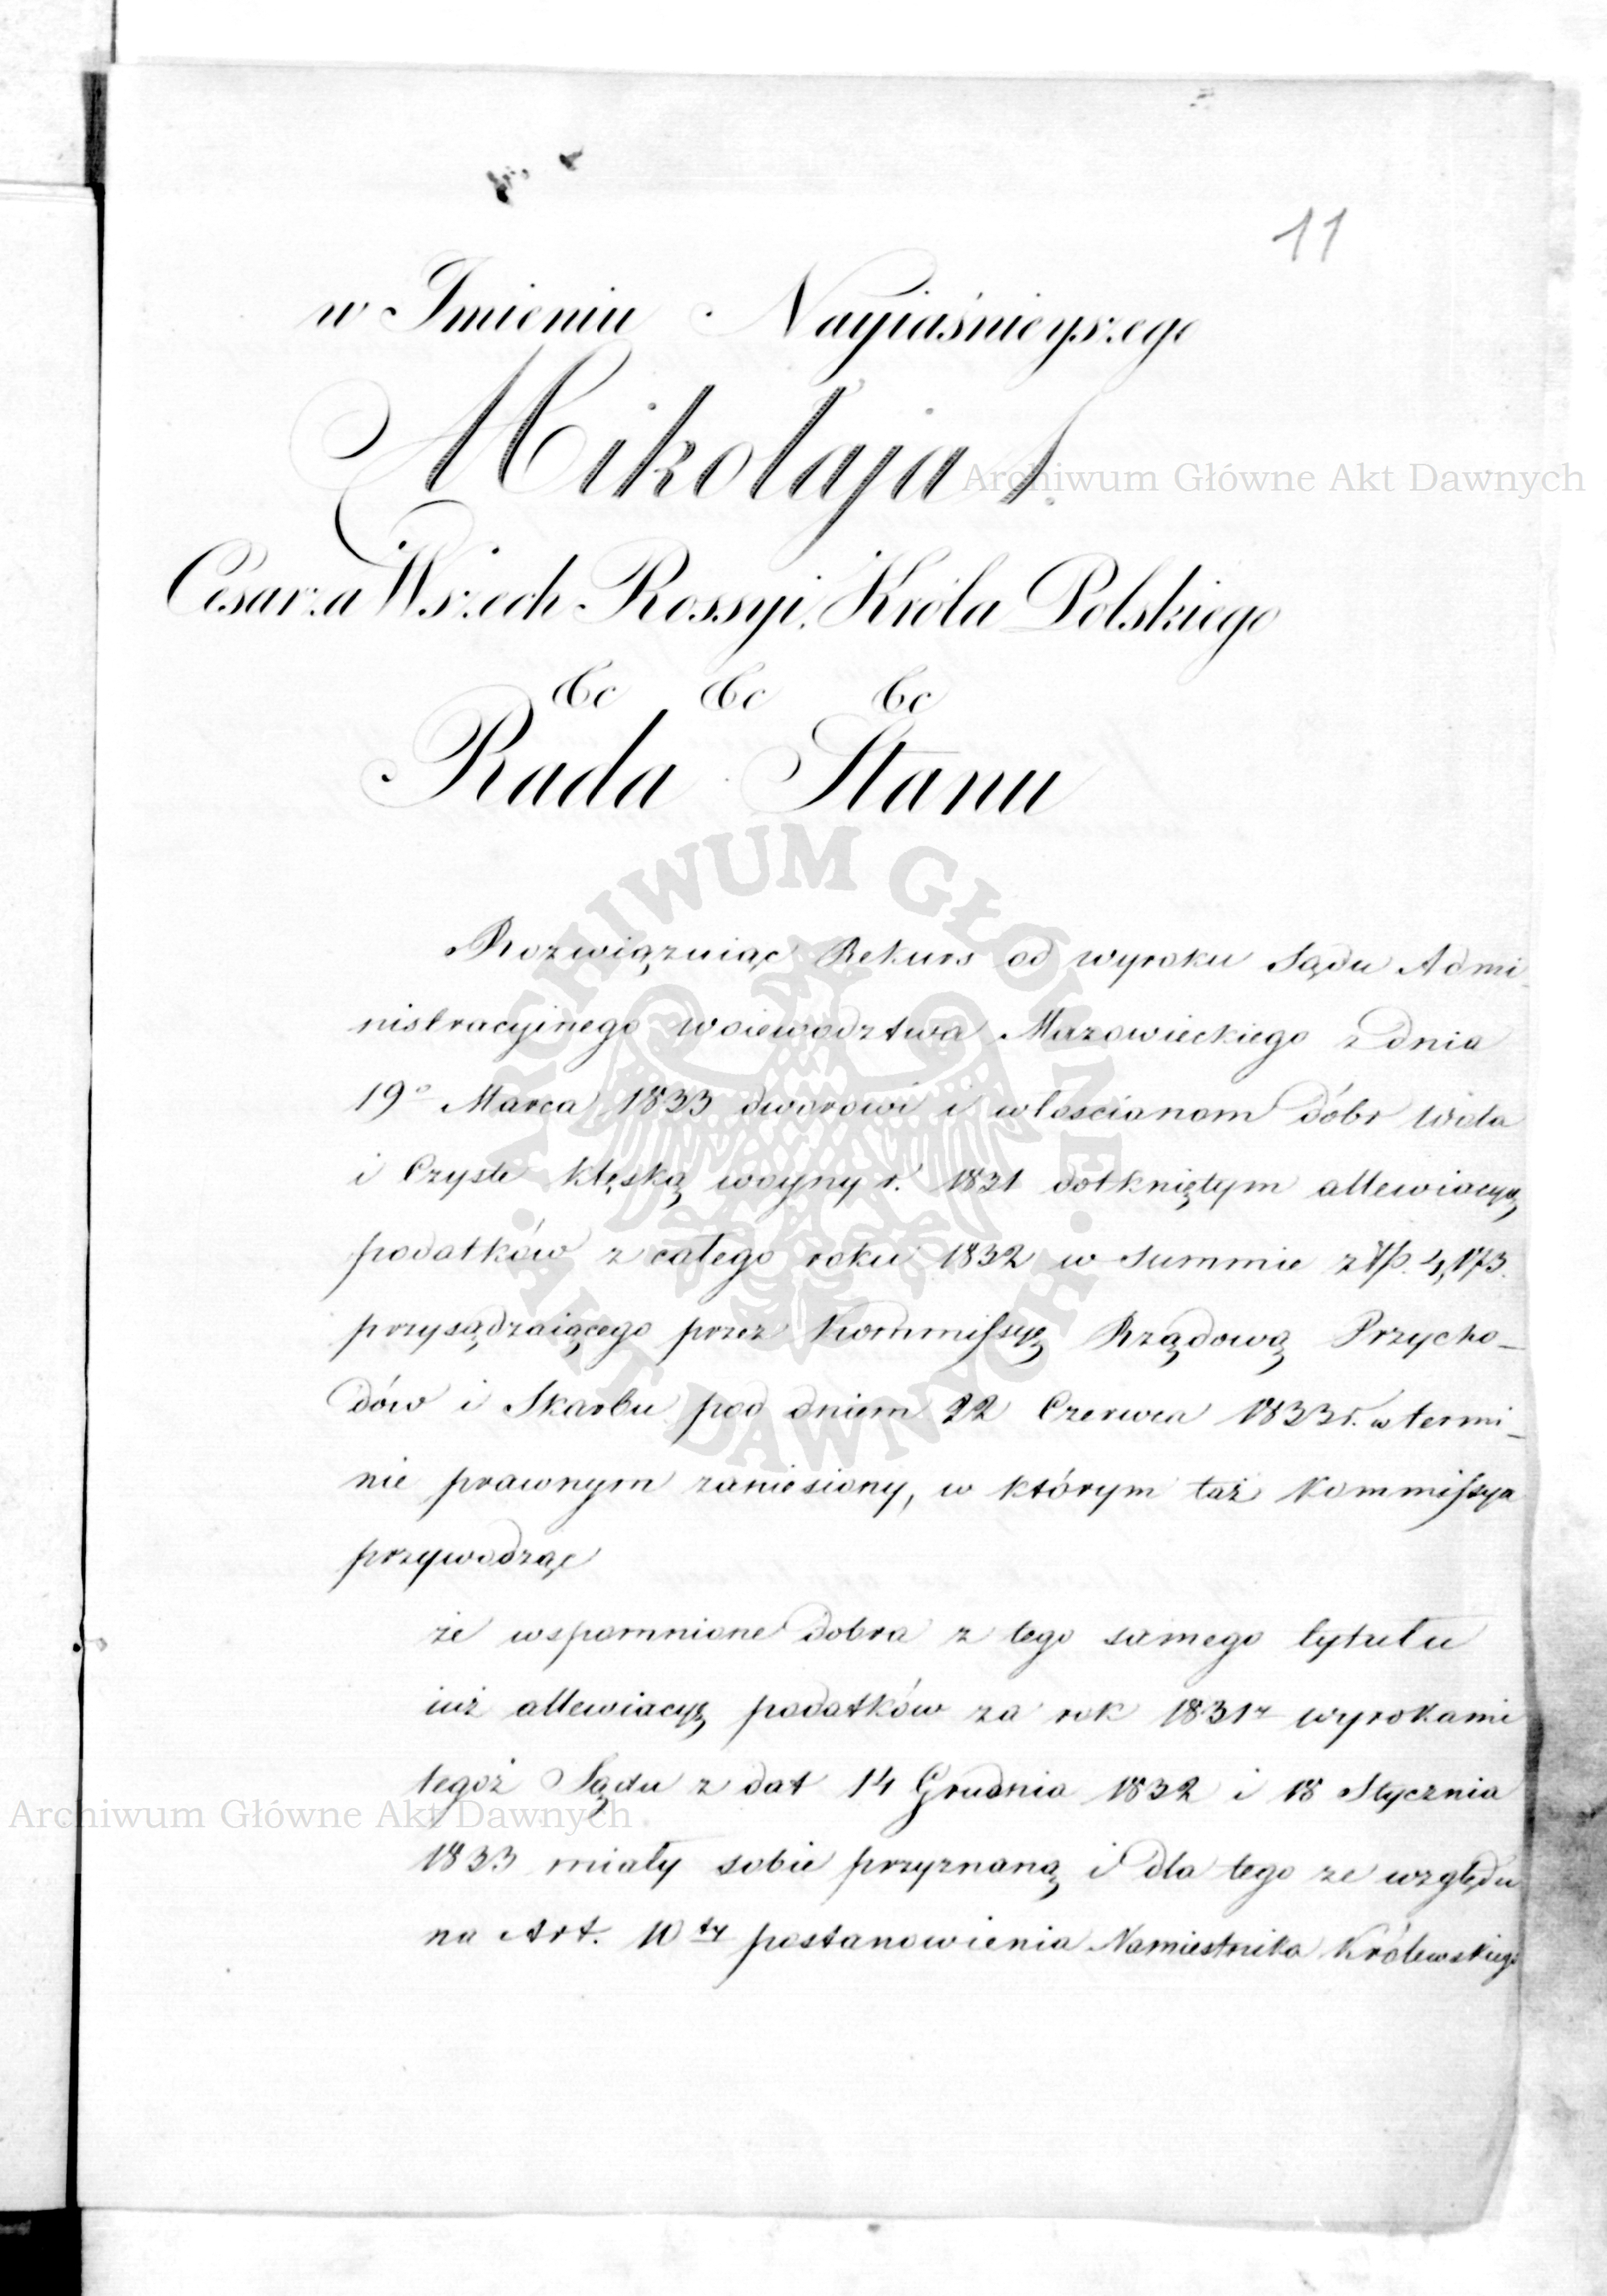 11
w Imieniu Nayiaśnieyszego
Mikołaja I.
Cesarza Wszech Rossyi, Króla Polskiego
&c &c &c
Rada Stanu
Rozwiązuiąc Rekurs od wyroku Sądu Admi-
nistracyinego Woiewodztwa Mazowieckiego z dnia
19o Marca 1833 dworowi i włoscianom dóbr Wola
i Czyste klęską woyny r. 1831 dotkniętym allewiacyą
podatków z całego roku 1832 w summie złp. 4,173.
przysądzaiącego przez Kommissyę Rządową Przycho-
dów i Skarbu pod dniem 22 Czerwca 1833 r. w termi-
nie prawnym zaniesiony, w którym taż Kommissya
przywodząc
że wspomnione dobra z tego samego tytułu
iuż allewiacyę podatków za rok 1831r wyrokami
tegoż Sądu z dat 14 Grudnia 1832 i 18 Stycznia
1833 miały sobie przyznaną i dla tego ze względu
na Art. 10ty postanowienia Namiestnika Królewskiego
Archiwum Główne Akt Dawnych
Archiwum Główne Akt Dawnych
ARCHIWUM GŁÓWNE
AKT DAWNYCH